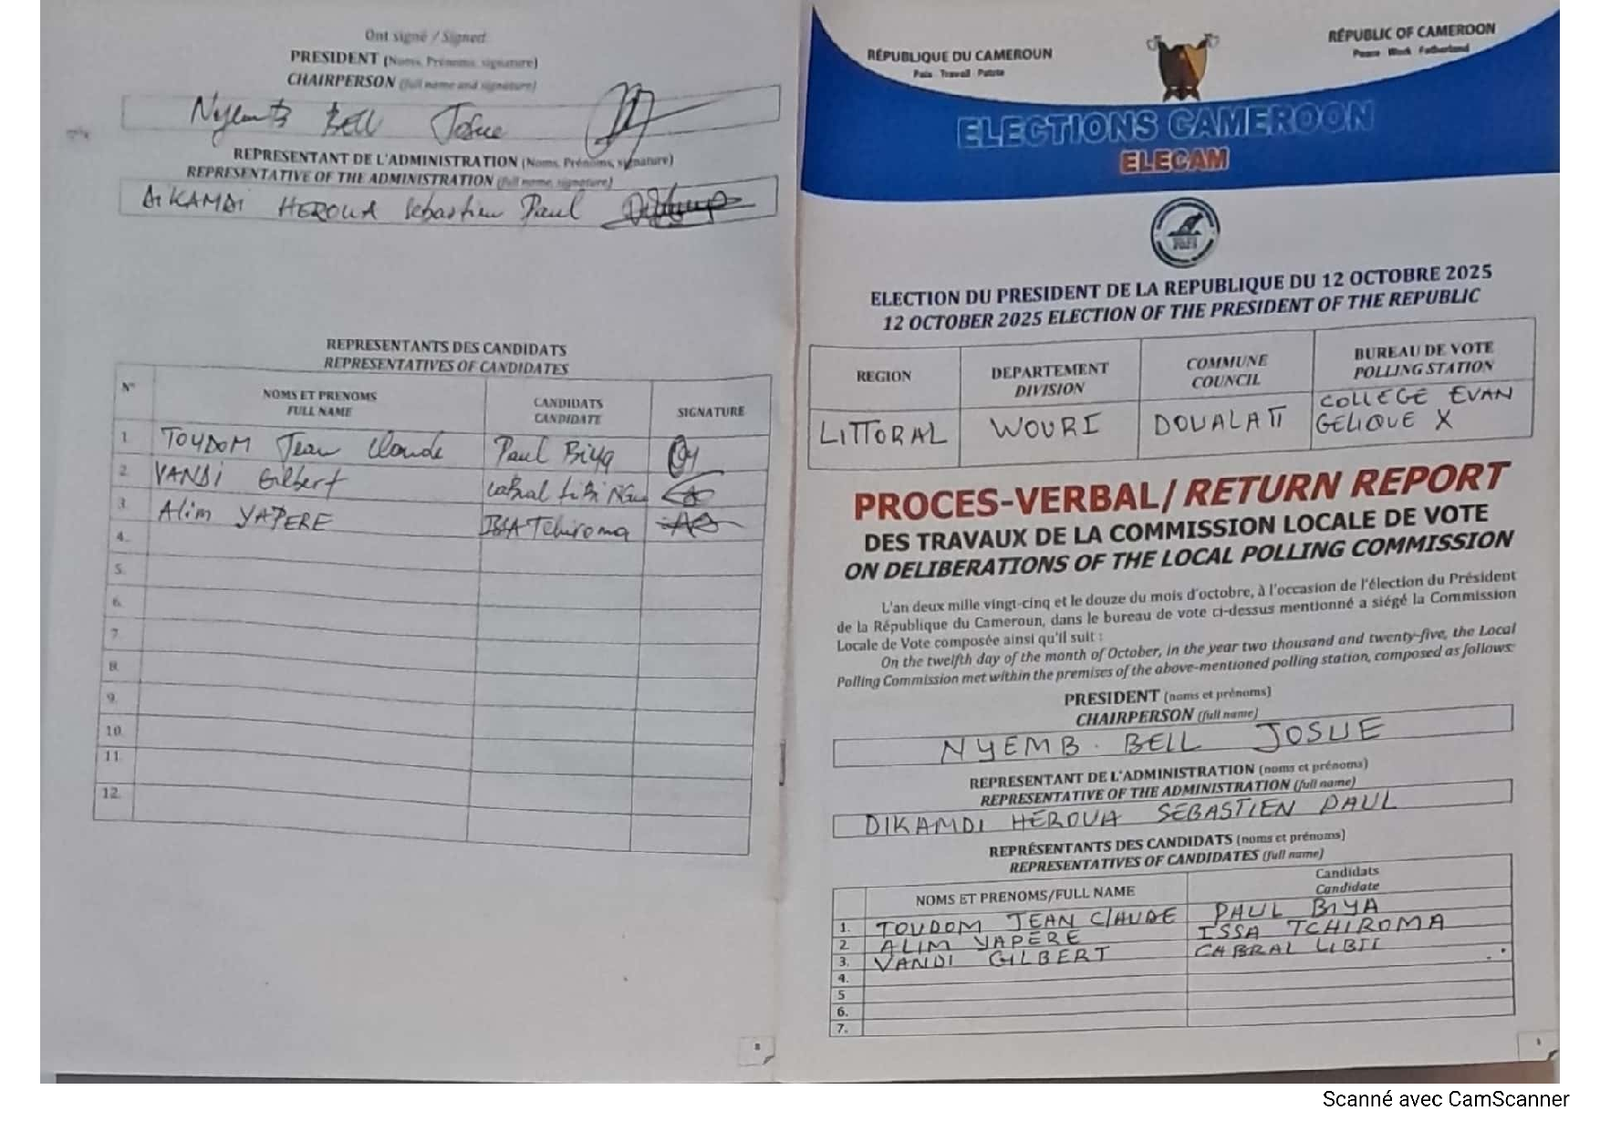 Ont signé / Signed
PRESIDENT (Noms, Prénoms, signature)
CHAIRPERSON (full name and signature)
BELL Josue
REPRESENTANT DE L'ADMINISTRATION (Noms, Prénoms, signature)
REPRESENTATIVE OF THE ADMINISTRATION (full name, signature)
DIKAMDI HEROUA Sebastien Paul
REPRESENTANTS DES CANDIDATS
REPRESENTATIVES OF CANDIDATES
N° NOMS ET PRENOMS CANDIDATS SIGNATURE
FULL NAME CANDIDATE
1 TOUDOM Jean Claude Paul Biya
2. VANDI Gilbert Cabral
3. Alim YAPERE ISSA Tchiroma
4.
5.
6.
7.
8.
9.
10.
11.
12.
8
RÉPUBLIQUE DU CAMEROUN
Paix Travail Patrie
RÉPUBLIC OF CAMEROON
Peace Work Fatherland
ELECTIONS CAMEROON
ELECAM
ELECTION DU PRESIDENT DE LA REPUBLIQUE DU 12 OCTOBRE 2025
12 OCTOBER 2025 ELECTION OF THE PRESIDENT OF THE REPUBLIC
REGION DEPARTEMENT DIVISION COMMUNE COUNCIL BUREAU DE VOTE POLLING STATION
LITTORAL WOURI DOUALA II COLLEGE EVAN
GÉLIQUE X
PROCES-VERBAL/ RETURN REPORT
DES TRAVAUX DE LA COMMISSION LOCALE DE VOTE
ON DELIBERATIONS OF THE LOCAL POLLING COMMISSION
L'an deux mille vingt-cinq et le douze du mois d'octobre, à l'occasion de l'élection du Président
de la République du Cameroun, dans le bureau de vote ci-dessus mentionné a siégé la Commission
Locale de Vote composée ainsi qu'il suit :
On the twelfth day of the month of October, in the year two thousand and twenty-five, the Local
Polling Commission met within the premises of the above-mentioned polling station, composed as follows:
PRESIDENT (noms et prénoms)
CHAIRPERSON (full name)
NYEMB BELL JOSUE
REPRESENTANT DE L'ADMINISTRATION (noms et prénoms)
REPRESENTATIVE OF THE ADMINISTRATION (full name)
DIKAMDI HEROUA SEBASTIEN PAUL
REPRÉSENTANTS DES CANDIDATS (noms et prénoms)
REPRESENTATIVES OF CANDIDATES (full name)
NOMS ET PRENOMS/FULL NAME Candidats
Candidate
1. TOUDOM JEAN CLAUDE PAUL BIYA
2 ALIM YAPERE ISSA TCHIROMA
3. VANDI GILBERT CABRAL LIBII
4.
5
6.
7.
1
Scanné avec CamScanner